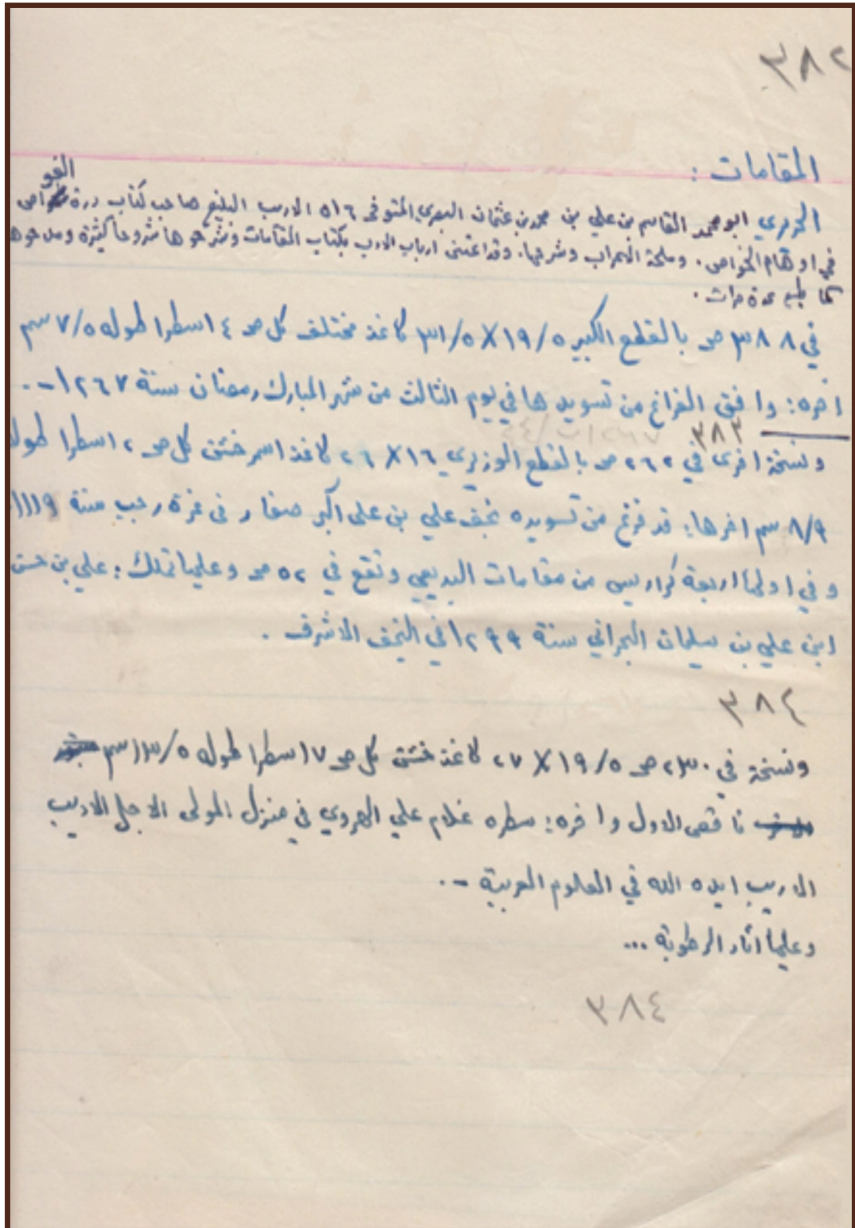 ٣٨٢
المقامات :
الغو
الحريري ابو محمد القاسم بن علي بن محمد بن عثمان البصري المتوفى ٥١٦ الاديب البليغ صاحب كتاب درة اص
في اوهام الخواص . وملحة الاعراب وشرحها . وقد اعتنى ارباب الادب بكتاب المقامات وشرحوها شروحاً كثيرة ومدحوها
كما طبع عدة مرات .
في ٣٨٨ صـ بالقطع الكبير ١٩/٥ X ٣١/٥ كاغذ مختلف كل صـ ٤ اسطرا طوله ٧/٥ سم
اخره : وافق الفراغ من تسويدها في يوم الثالث من شهر المبارك رمضان سنة ١٢٦٧ - .
٣٨٣
ونسخة اخرى في ٢٦٢ صـ بالقطع الوزيري ١٦ X ٢٦ كاغذ اسمر خشن كل صـ ٢ اسطرا طوله
٨/٩ سم اخرها : قد فرغ من تسويده نجف علي بن علي اكبر صفار في غرة رجب سنة ١١١٩
وفي اولها اربعة كراريس من مقامات البديعي وتقع في ٥٢ صـ وعليها تملك : علي بن حسن
ابن علي بن سليمان البحراني سنة ١٢٩٩ في النجف الاشرف .
٣٨٤
ونسخة في ٢٣٠ صـ ١٩/٥ X ٢٧ كاغذ خشن كل صـ ١٧ سطرا طوله ١٣/٥ سم
ناقص الاول واخره : سطره غلام علي الهروي في منزل المولى الاجل الاديب
الاريب ايده الله في العلوم العربية - .
وعليها اثار الرطوبة ...
٣٨٤